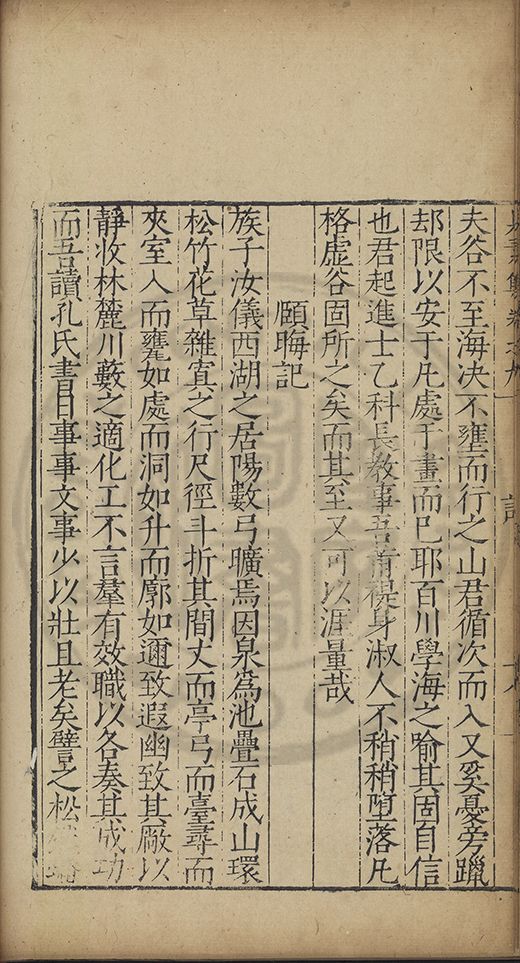 夫谷不至海决不壅而行之山君循次而入又奚憂旁躐
却限以安于凡處于畫而巳耶百川學海之喻其固自信
也君起進士乙科長教事吾莆禔身淑人不稍稍墮落凡
格虛谷固所之矣而其至又可以涯量哉
頤晦記
族子汝儀西湖之居陽數弓曠焉因泉為池疊石成山環
松竹花草雜寘之行尺徑斗折其間丈而亭弓而臺尋而
夾室入而甕如處而洞如升而廓如邇致遐幽致其厰以
靜收林麓川藪之適化工不言羣有效職以各奏其成功
而吾讀孔氏書日事事文事少以壯且老矣譬之松